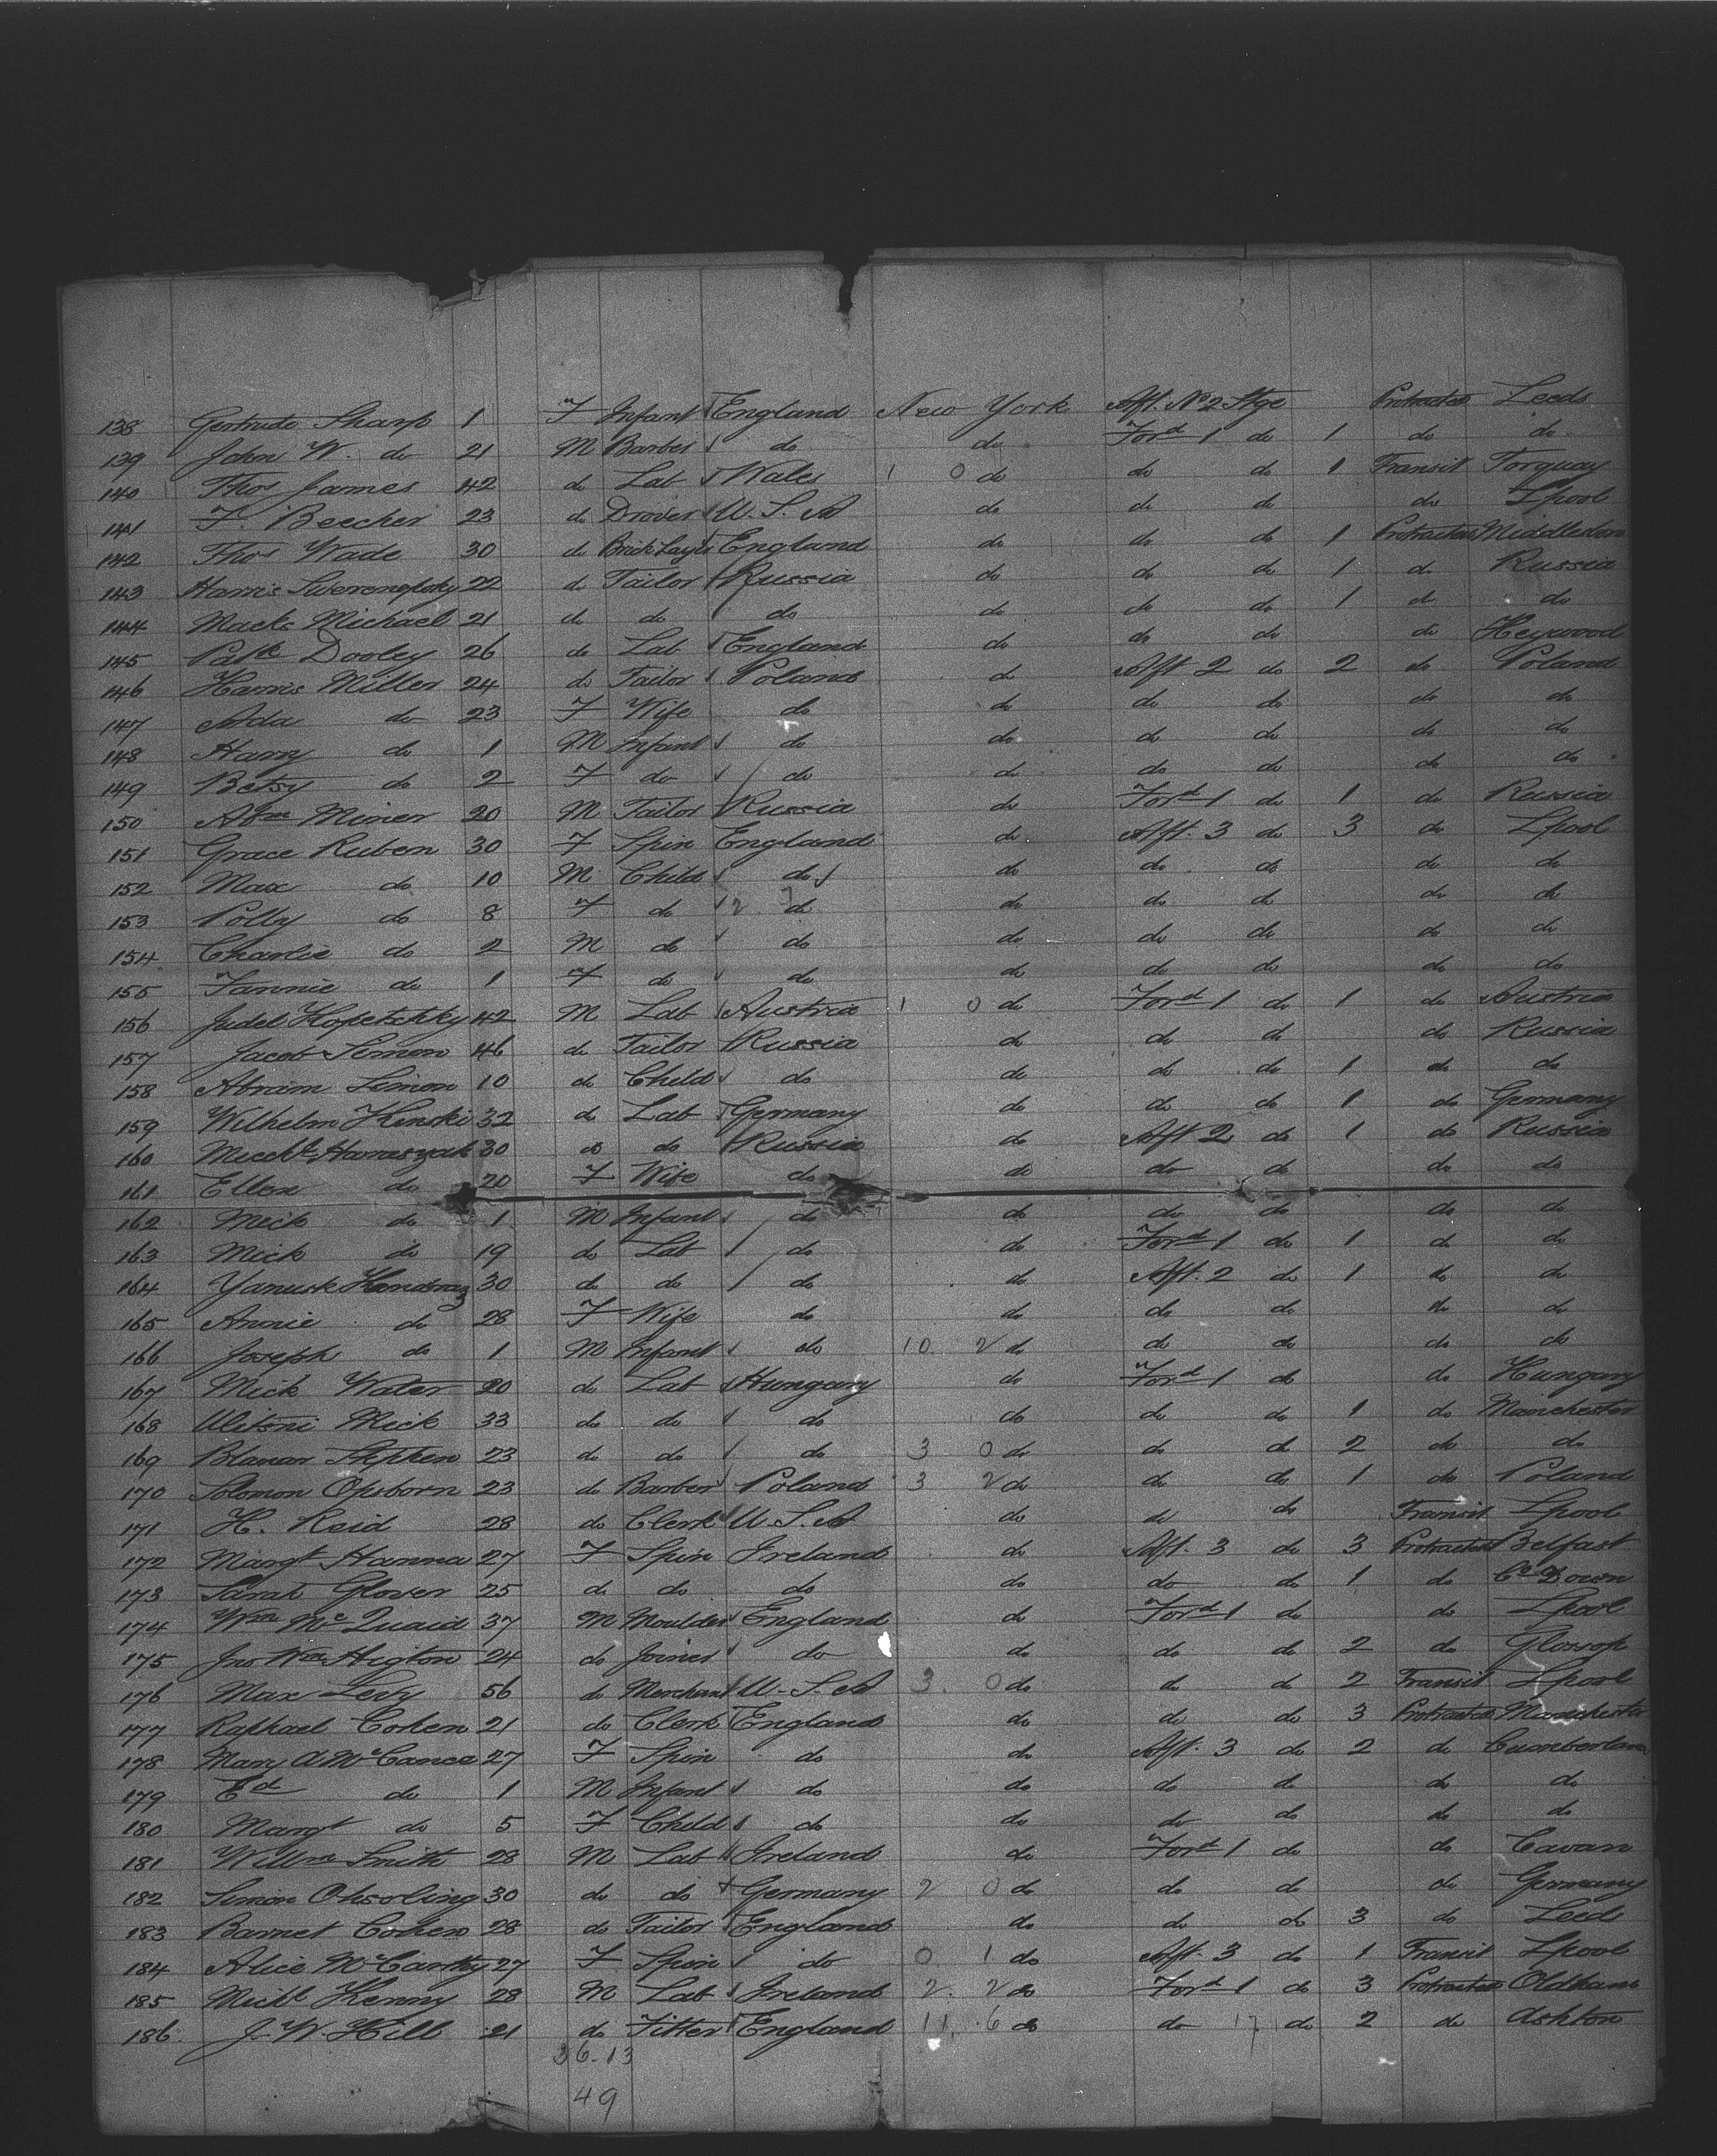 138 Gertrude Sharp 1 F Infant England New York Aft. No 2 Stge Protracted Leeds
139 John W. do 21 M Barber do do For'd 1 do 1 do do
140 Thos James 42 do Lab Wales 1 0 do do do 1 Transit Torquay
141 F. Beecher 23 do Drover U.S.A do do do do Lpool
142 Thos Wade 30 do Brick Layer England do do do 1 Protracted
143 Harris 22 do Tailor Russia do do do 1 do Russia
144 Macks Michael 21 do do do do do do 1 do do
145 Patk Dooley 26 do Lab England do do do do Heywood
146 Harris Miller 24 do Tailor Poland do Aft 2 do 2 do Poland
147 Ada do 23 F Wife do do do do do do
148 Harry do 1 M Infant do do do do do do
149 Betsy do 2 F do do do do do do do
150 Abm Miner 20 M Tailor Russia do For'd 1 do 1 do Russia
151 Grace Ruben 30 F Spin England do Aft. 3 do 3 do Lpool
152 Max do 10 M Child do do do do do do
153 Polly do 8 F do 2 7 do do do do do do
154 Charlie do 2 M do do do do do do do
155 Fannie do 1 F do do do do do do do
156 Judel Kopetschky 42 M Lab Austria 1 0 do For'd 1 do 1 do Austria
157 Jacob Simon 46 do Tailor Russia do do do do Russia
158 Abram Simon 10 do Child do do do do 1 do do
159 Wilhelm Kinski 32 do Lab Germany do do do 1 do Germany
160 30 do do Russia do Aft 2 do 1 do Russia
161 Ellen do 20 F Wife do do do do do do
162 Mick do 1 M Infant do do do do do do
163 Mick do 19 do Lab do do For'd 1 do 1 do do
164 Yanusk 30 do do do do Aft. 2 do 1 do do
165 Annie do 28 F Wife do do do do do do
166 Joseph do 1 M Infant do 10 2 do do do do do
167 Mick Water 20 do Lab Hungary do For'd 1 do do Hungary
168 Mick 33 do do do do do do 1 do Manchester
169 Blanar Stephen 23 do do do 3 0 do do do 2 do do
170 Solomon Opsborn 23 do Barber Poland 3 2 do do do 1 do Poland
171 H. Reid 28 do Clerk U.S.A do do do Transit Lpool
172 Margt Hanna 27 F Spin Ireland do Aft. 3 do 3 Protracted Belfast
173 Sarah Glover 25 do do do do do do 1 do Co Down
174 Wm McQuaid 37 M Moulder England do For'd 1 do do Lpool
175 Jno Wm Higton 24 do Joiner do do do do 2 do Glossop
176 Max Levy 56 do Merchant U.S.A 3. 0 do do do 2 Transit Lpool
177 Raphael Cohen 21 do Clerk England do do do 3 Protracted Manchester
178 Mary A McCance 27 F Spin do do Aft. 3 do 2 do Cumberland
179 Ed do 1 M Infant do do do do do do
180 Margt do 5 F Child do do do do do do
181 Willm Smith 28 M Lab Ireland do For'd 1 do do Cavan
182 Simon Ohsoling 30 do do Germany 2 0 do do do do Germany
183 Barnet Cohen 28 do Tailor England do do do 3 do Leeds
184 Alice McCarthy 27 F Spin do 0 1 do Aft. 3 do 1 Transit Lpool
185 Michl Kenny 28 M Lab Ireland 2. 2 do For'd 1 do 3 Protracted Oldham
186 J. W. Hill 21 do Fitter England 11. 6 do do 17 do 2 do Ashton
36.13
49